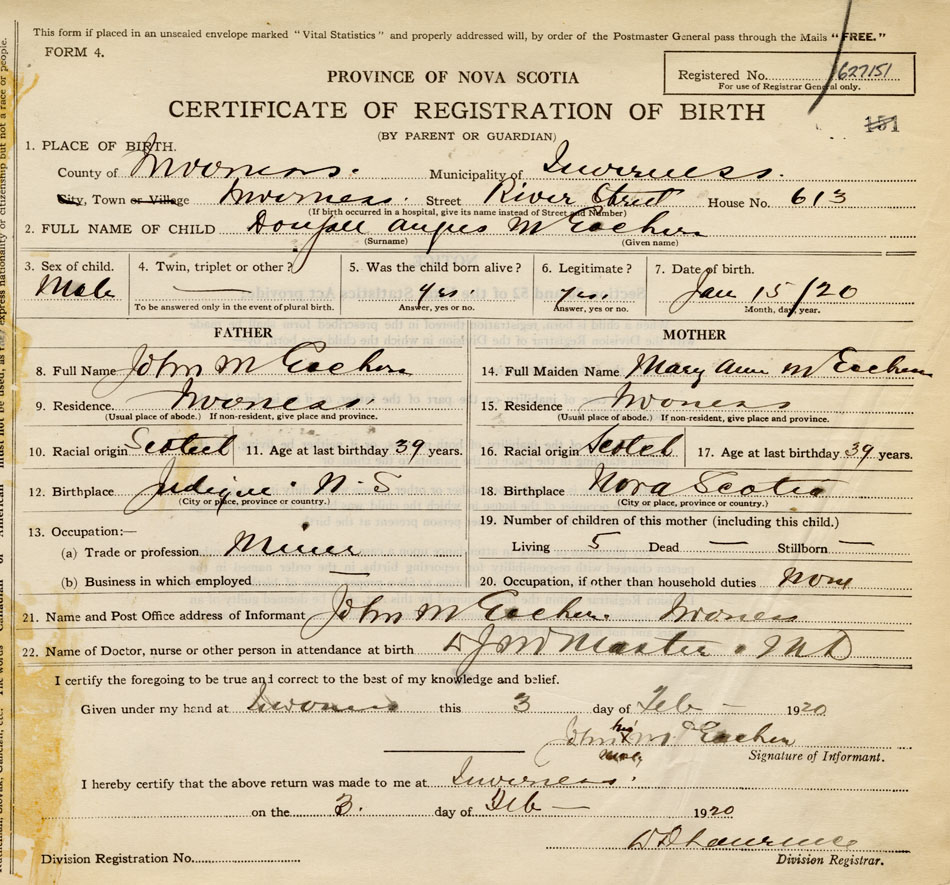 This form if placed in an unsealed envelope marked "Vital Statistics" and properly addressed will, by order of the Postmaster General pass through the Mails "FREE."
FORM 4.
Registered No. 627151
For use of Registrar General only.
PROVINCE OF NOVA SCOTIA
CERTIFICATE OF REGISTRATION OF BIRTH
151
(BY PARENT OR GUARDIAN)
1. PLACE OF BIRTH.
County of Inverness. Municipality of Inverness.
City, Town or Village Inverness. Street River Street House No. 613
(If birth occurred in a hospital, give its name instead of Street and Number)
2. FULL NAME OF CHILD Angus McEachern
(Surname) (Given name)
3. Sex of child. 4. Twin, triplet or other? 5. Was the child born alive? 6. Legitimate? 7. Date of birth.
Male — yes. yes. Jan 15/20
To be answered only in the event of plural birth. Answer, yes or no. Answer, yes or no. Month, day, year.
FATHER MOTHER
8. Full Name John McEachern 14. Full Maiden Name Mary Ann McEachern
9. Residence. Inverness. 15. Residence Inverness
(Usual place of abode.) If non-resident, give place and province. (Usual place of abode.) If non-resident, give place and province.
10. Racial origin Scotch 11. Age at last birthday 39 years. 16. Racial origin Scotch 17. Age at last birthday 39 years.
12. Birthplace Judique. N.S 18. Birthplace Nova Scotia
(City or place, province or country.) (City or place, province or country.)
13. Occupation:— 19. Number of children of this mother (including this child.)
(a) Trade or profession Miner Living 5 Dead — Stillborn —
(b) Business in which employed — 20. Occupation, if other than household duties None
21. Name and Post Office address of Informant John McEachern. Inverness
22. Name of Doctor, nurse or other person in attendance at birth McMaster. MD
I certify the foregoing to be true and correct to the best of my knowledge and belief.
Given under my hand at Inverness this 3 day of Feb — 1920
his
John X McEachern
mark
Signature of Informant.
I hereby certify that the above return was made to me at Inverness.
on the 3. day of Feb — 1920
Lawrence
Division Registration No. Division Registrar.